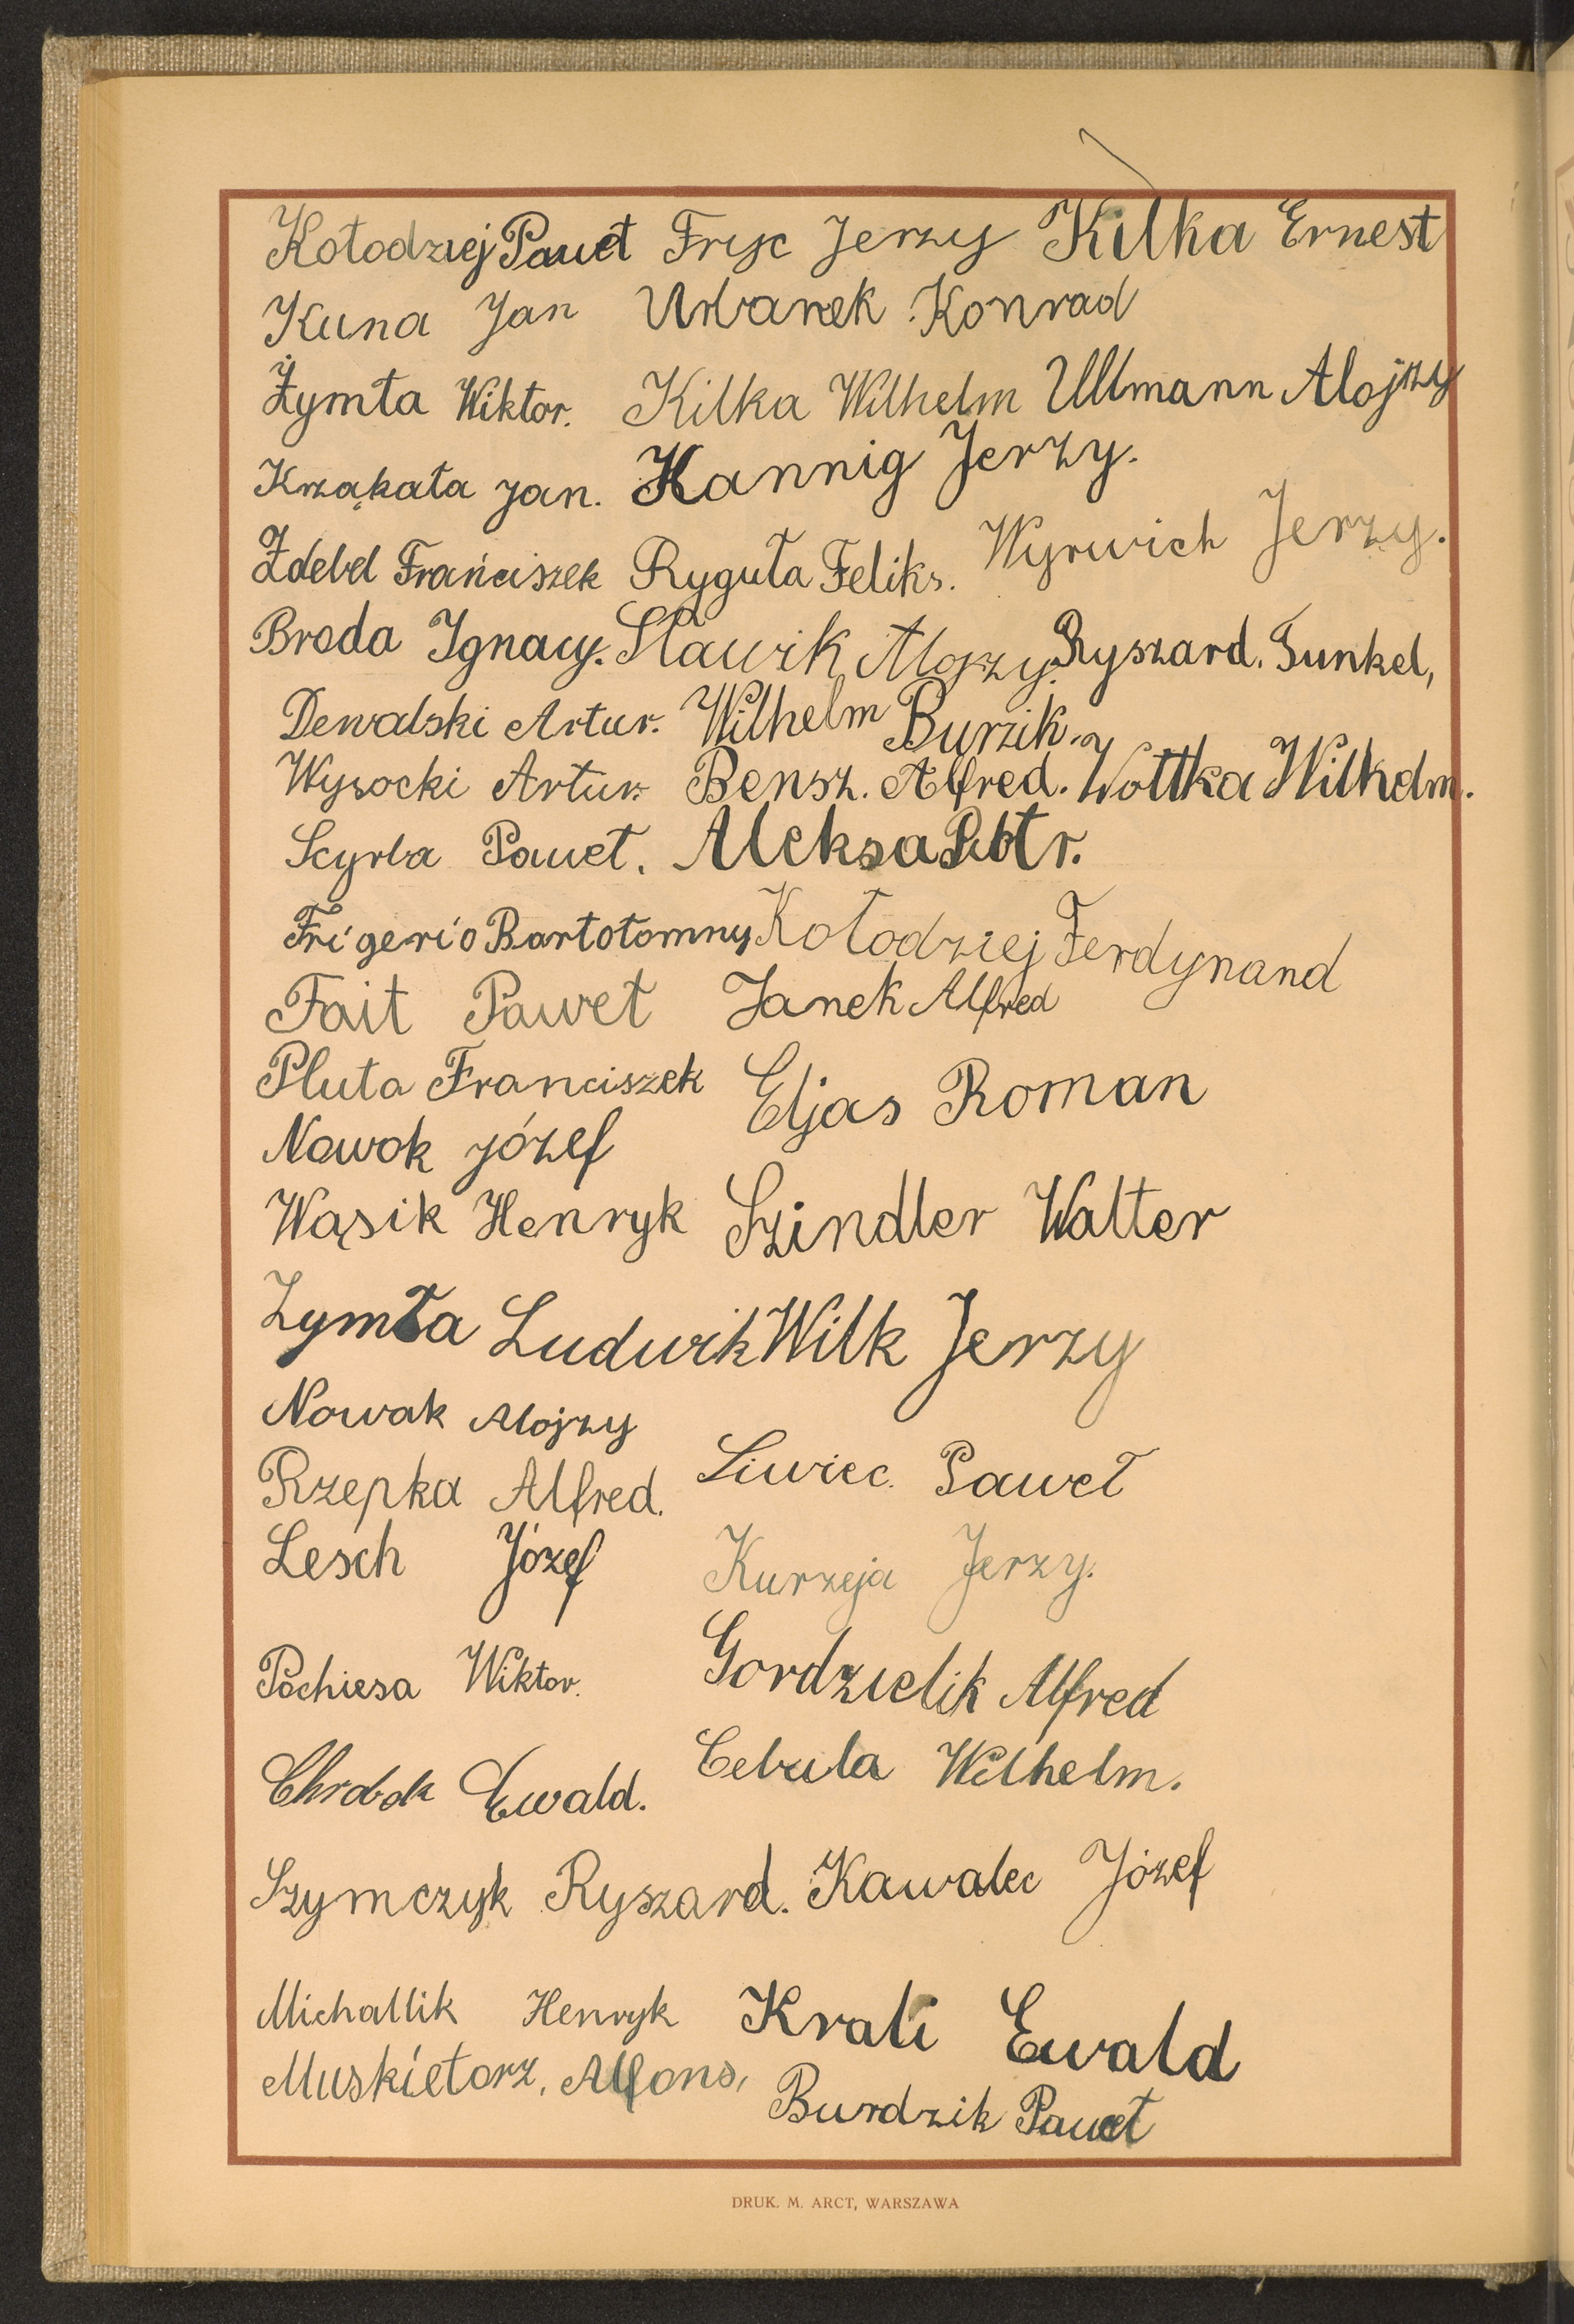 Kołodziej Paweł Fryc Jerzy Kilka Ernest
Kuna Jan Urbanek Konrad
Żymła Wiktor. Kilka Wilhelm Ullmann Alojzy
Krząkała Jan. Hannig Jerzy.
Zdebel Franciszek Ryguła Feliks. Wyrwich Jerzy.
Broda Ignacy. Sławik Alojzy. Ryszard. Gunkel,
Dewalski Artur. Wilhelm Burzik.
Wysocki Artur. Bensz. Alfred. Wottka Wilhelm.
Scyrba Paweł. Aleksa Piotr.
Frigerio Bartołomny Kołodziej Ferdynand
Fait Paweł Janek Alfred
Pluta Franciszek Eljas Roman
Nowok Józef
Wąsik Henryk Szindler Walter
Zymła Ludwik Wilk Jerzy
Nowak Alojzy
Rzepka Alfred. Siwiec. Paweł
Lesch Józef Kurzeja Jerzy.
Pochiesa Wiktor. Gordzielik Alfred
Chrobok Ewald. Cebula Wilhelm.
Szymczyk Ryszard. Kawalec Józef
Michallik Henryk Krali Ewald
Muskietorz, Alfons, Burdzik Paweł
DRUK. M. ARCT, WARSZAWA